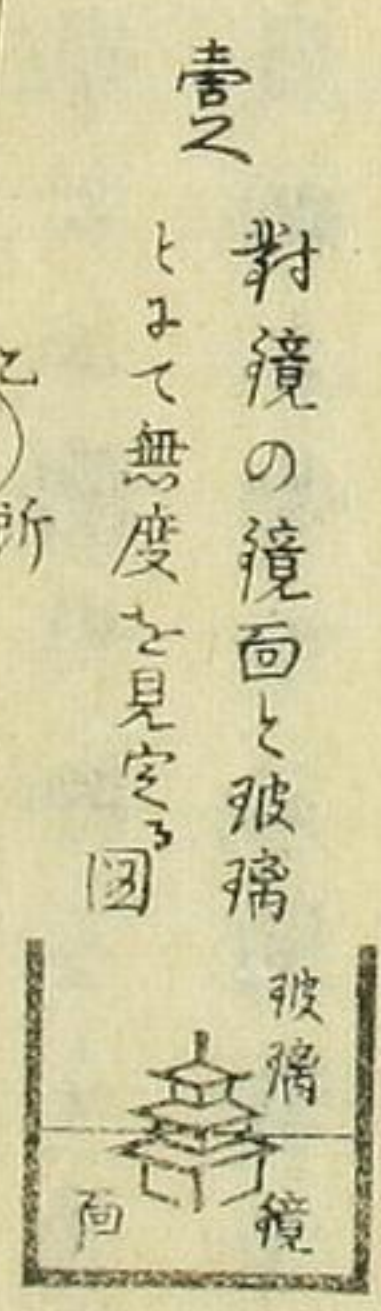 壹
對鏡の鏡面と玻璃
とにて無度を見定る図
玻璃
鏡面
所